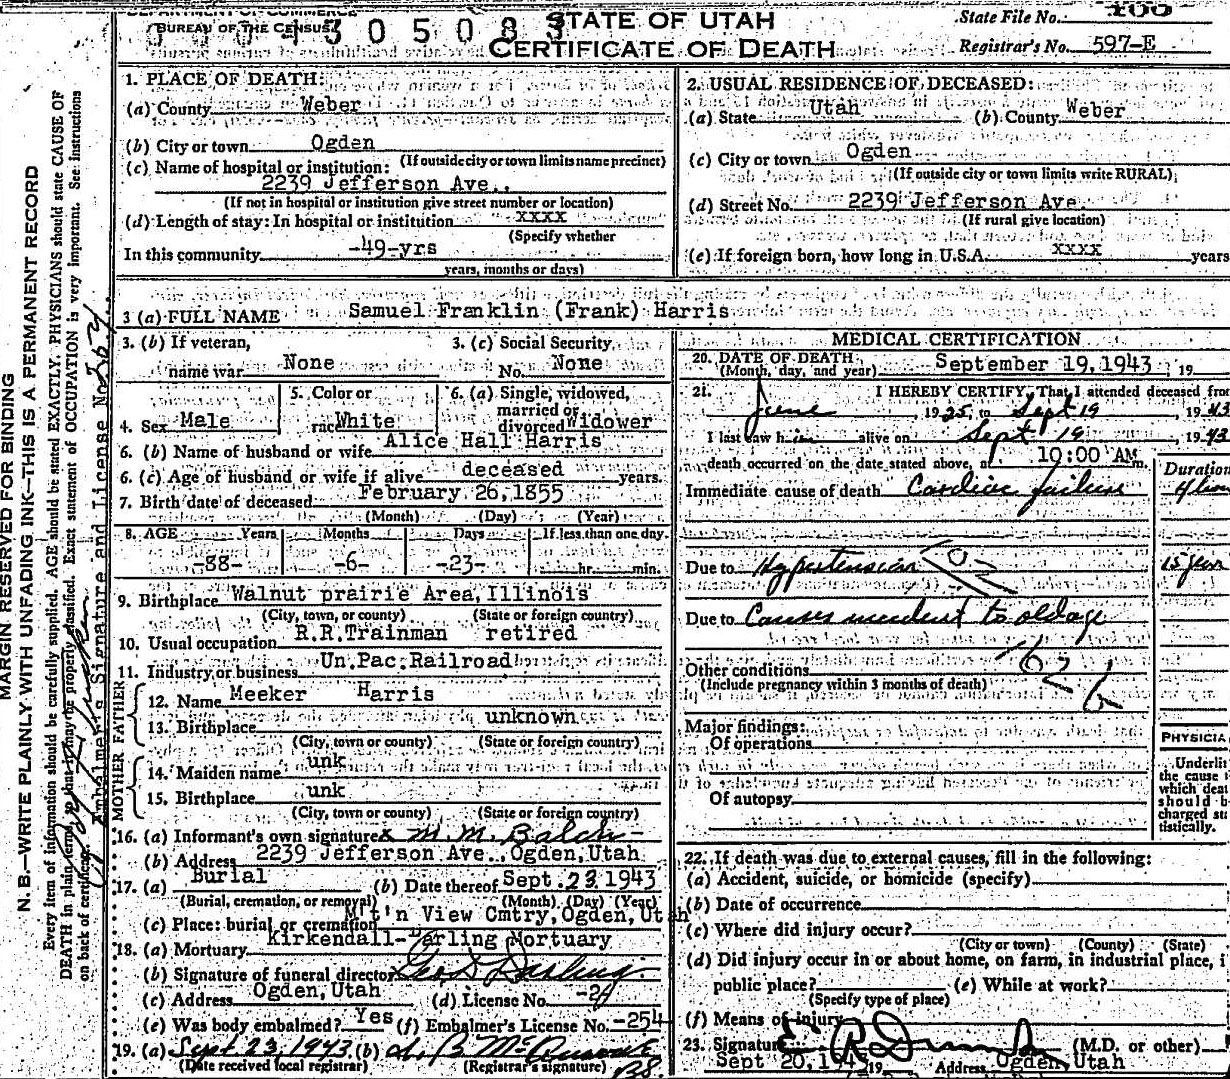 DEPARTMENT OF COMMERCE
BUREAU OF THE CENSUS
305083
STATE OF UTAH
CERTIFICATE OF DEATH
State File No.
Registrar's No. 597-E
MARGIN RESERVED FOR BINDING
N. B.—WRITE PLAINLY WITH UNFADING INK—THIS IS A PERMANENT RECORD
Every item of information should be carefully supplied. AGE should be stated EXACTLY. PHYSICIANS should state CAUSE OF
DEATH in plain terms, so that it may be properly classified. Exact statement of OCCUPATION is very important. See instructions
on back of certificate.
Embalmer's Signature and License No.
1. PLACE OF DEATH:
(a) County Weber
(b) City or town Ogden
(If outside city or town limits name precinct)
(c) Name of hospital or institution:
2239 Jefferson Ave.,
(If not in hospital or institution give street number or location)
(d) Length of stay: In hospital or institution xxxx
(Specify whether
In this community -49-yrs
years, months or days)
2. USUAL RESIDENCE OF DECEASED:
(a) State Utah (b) County Weber
(c) City or town Ogden
(If outside city or town limits write RURAL)
(d) Street No. 2239 Jefferson Ave.
(If rural give location)
(e) If foreign born, how long in U.S.A. xxxx years
3 (a) FULL NAME Samuel Franklin (Frank) Harris
3. (b) If veteran, name war None
3. (c) Social Security No. None
4. Sex Male
5. Color or race White
6. (a) Single, widowed, married or divorced Widower
6. (b) Name of husband or wife Alice Hall Harris
6. (c) Age of husband or wife if alive deceased years.
7. Birth date of deceased February 26, 1855
(Month) (Day) (Year)
8. AGE Years Months Days If less than one day
-88- -6- -23- hr. min.
9. Birthplace Walnut prairie Area, Illinois
(City, town, or county) (State or foreign country)
10. Usual occupation R.R.Trainman retired
11. Industry or business Un.Pac.Railroad
FATHER
12. Name Meeker Harris
13. Birthplace unknown
(City, town or county) (State or foreign country)
MOTHER
14. Maiden name unk
15. Birthplace unk
(City, town or county) (State or foreign country)
16. (a) Informant's own signature x M. M. Balch
(b) Address 2239 Jefferson Ave., Ogden, Utah
17. (a) Burial (b) Date thereof Sept. 23 1943
(Burial, cremation, or removal) (Month) (Day) (Year)
(c) Place: burial or cremation M't'n View Cmtry, Ogden, Utah
18. (a) Mortuary Kirkendall-Darling Mortuary
(b) Signature of funeral director Geo D Darling
(c) Address Ogden, Utah (d) License No.
(e) Was body embalmed? Yes (f) Embalmer's License No. -254
19. (a) Sept 23, 1943 (b)
(Date received local registrar) (Registrar's signature)
MEDICAL CERTIFICATION
20. DATE OF DEATH September 19, 1943, 19
(Month, day, and year)
21. I HEREBY CERTIFY, That I attended deceased from
June, 1925, to Sept 19, 1943
I last saw him alive on Sept 19, 1943
death occurred on the date stated above, at 10:00 AM m.
Duration
Immediate cause of death Cardiac failure
Due to Hypertension
15 years
Due to Causes incident to old age
Other conditions
(Include pregnancy within 3 months of death)
162 b
Major findings:
Of operations
Of autopsy
PHYSICIA
Underli
the cause t
which deat
should b
charged sta
tistically.
22. If death was due to external causes, fill in the following:
(a) Accident, suicide, or homicide (specify)
(b) Date of occurrence
(c) Where did injury occur?
(City or town) (County) (State)
(d) Did injury occur in or about home, on farm, in industrial place, i
public place? (e) While at work?
(Specify type of place)
(f) Means of injury
23. Signature (M.D. or other)
Sept 20, 1943 19 Address Ogden, Utah